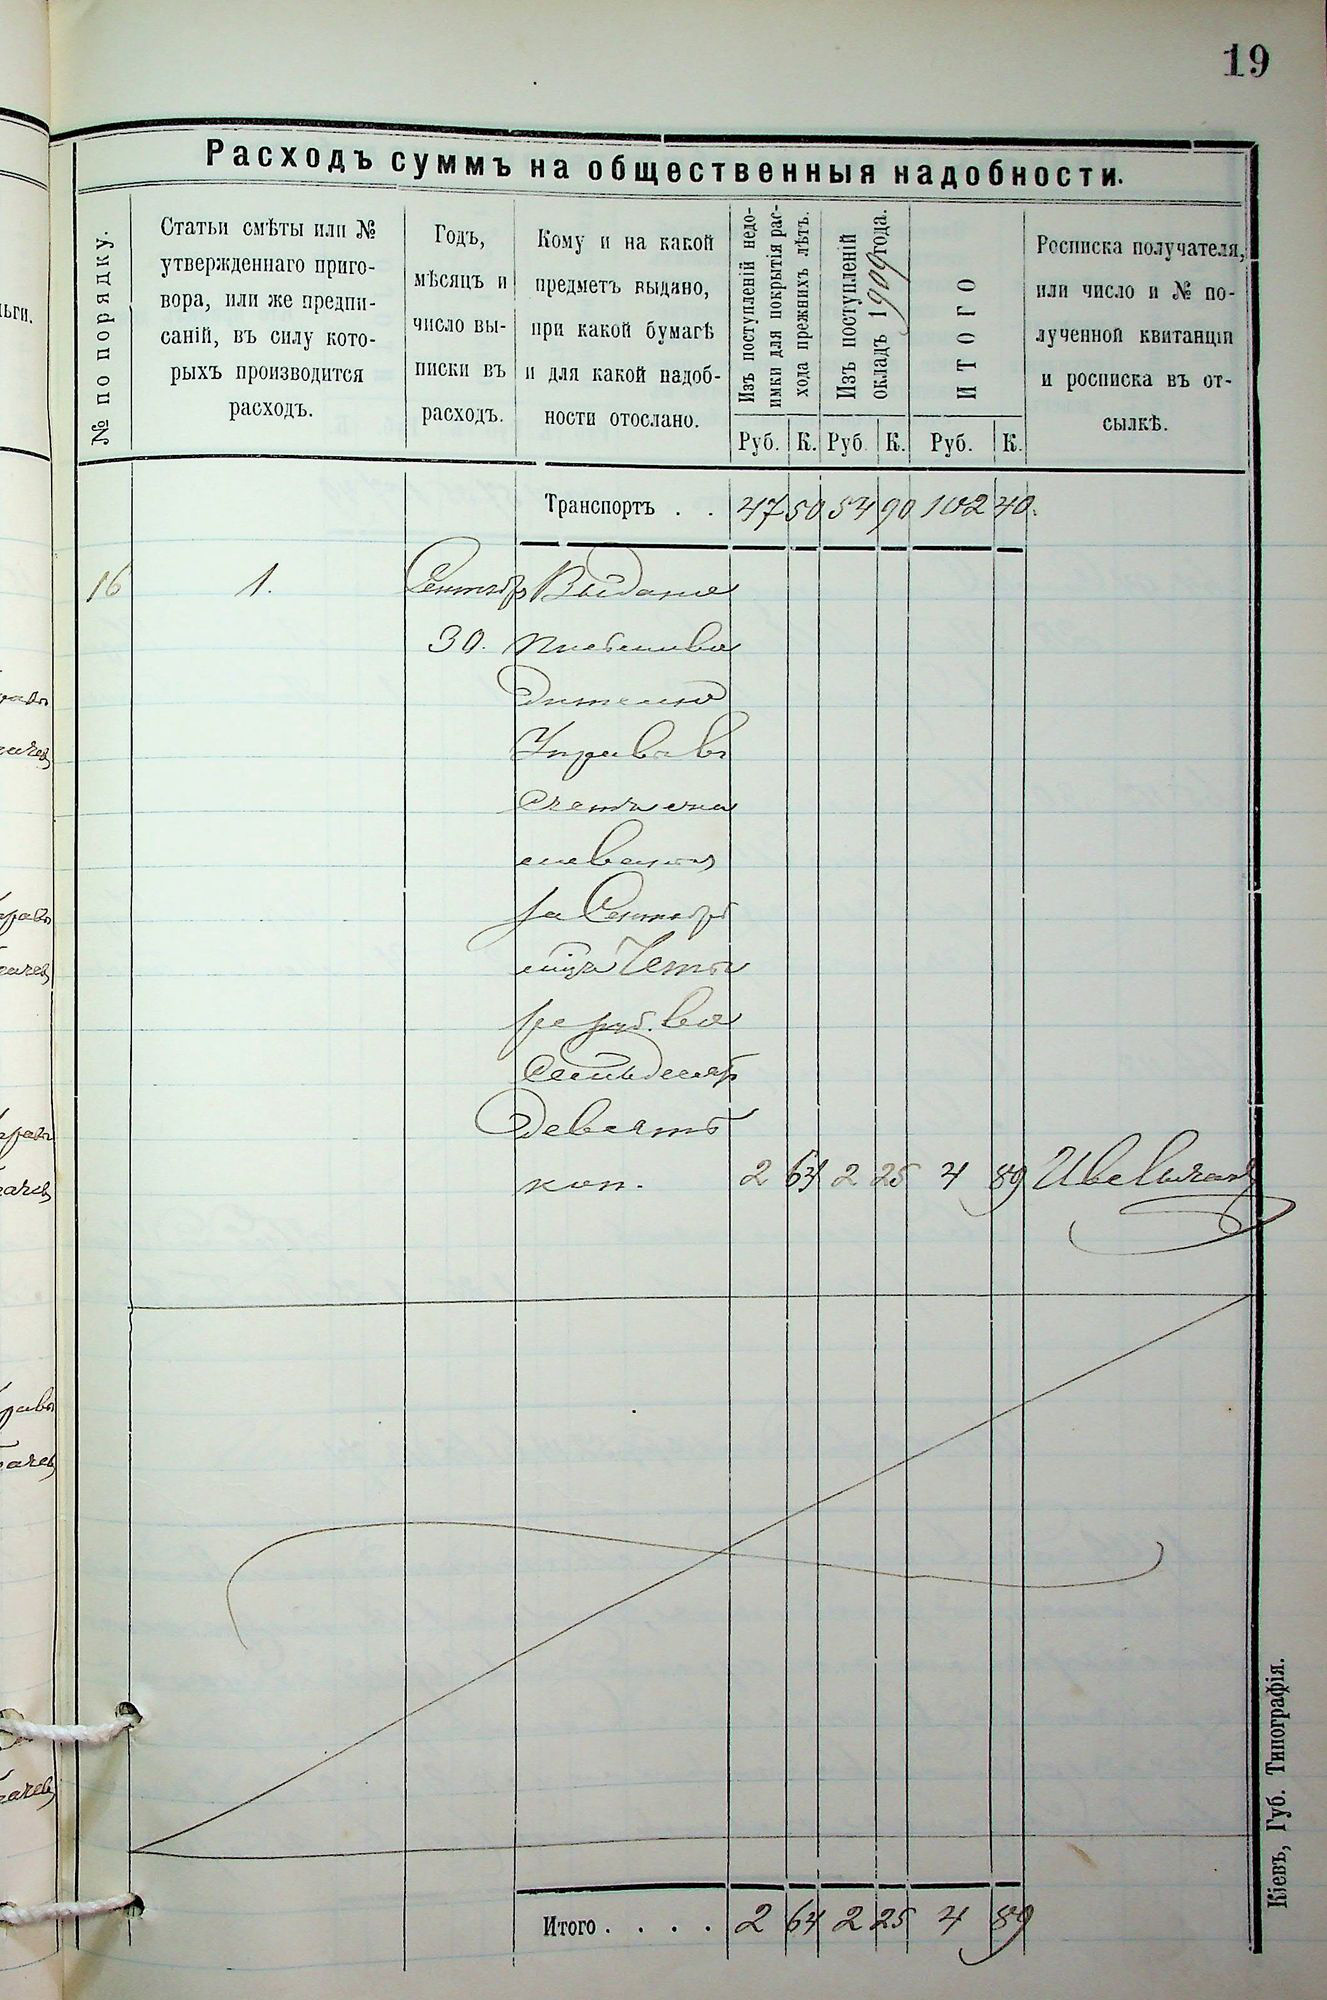 19
Расходъ суммъ на общественныя надобности.
№ по порядку.
Статьи смѣты или №
утвержденнаго приго-
вора, или же предпи-
саній, въ силу кото-
рыхъ производится
расходъ.
Годъ,
мѣсяцъ и
число вы-
писки въ
расходъ.
Кому и на какой
предметъ выдано,
при какой бумагѣ
и для какой надоб-
ности отослано.
Изъ поступленій недо-
имки для покрытія рас-
хода прежнихъ лѣтъ.
Изъ поступленій
окладъ 1909 года.
ИТОГО
Росписка получателя,
или число и № по-
лученной квитанціи
и росписка въ от-
сылкѣ.
Руб. К. Руб. К. Руб. К.
Транспортъ . . 47 50 54 90 102 40.
16 1. Сентябр Выдано
30.
за Сентябрь
мца Четы
ре руб. во
семьдесят
девять
коп. 2 64 2 25 4 89
Итого . . . . 2 64 2 25 4 89
Кіевъ, Губ. Типографія.